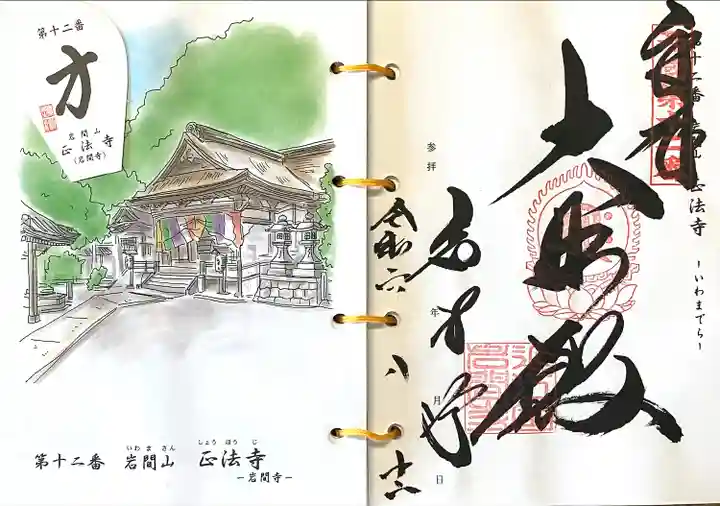 第十二番
方
岩間山
正法寺
(岩間寺)
いわまさん しょうほうじ
第十二番 岩間山 正法寺
-岩間寺-
奉拝
大悲殿
岩間寺
第十二番 岩間山 正法寺 -いわまでら-
参拝
年
月
日
令和六
八